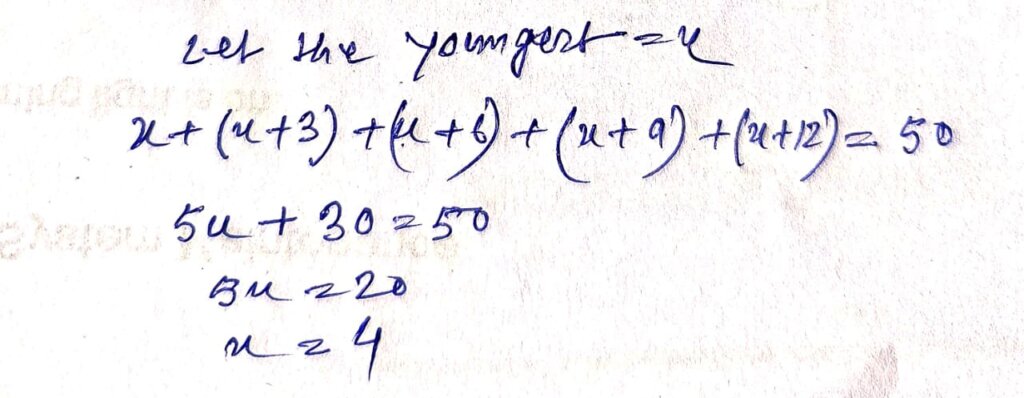 Let the youngest = x
x + (x+3) + (x+6) + (x+9) + (x+12) = 50
5x + 30 = 50
5x = 20
x = 4